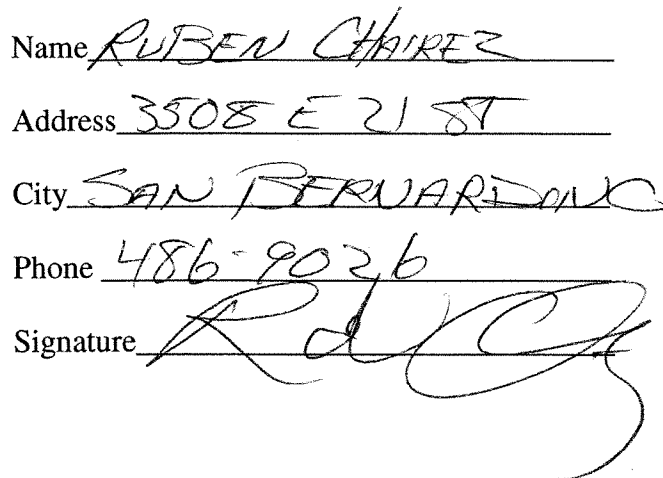 Name RUBEN CHAIREZ
Address 3508 E 21 ST
City SAN BERNARDINO
Phone 486-9026
Signature